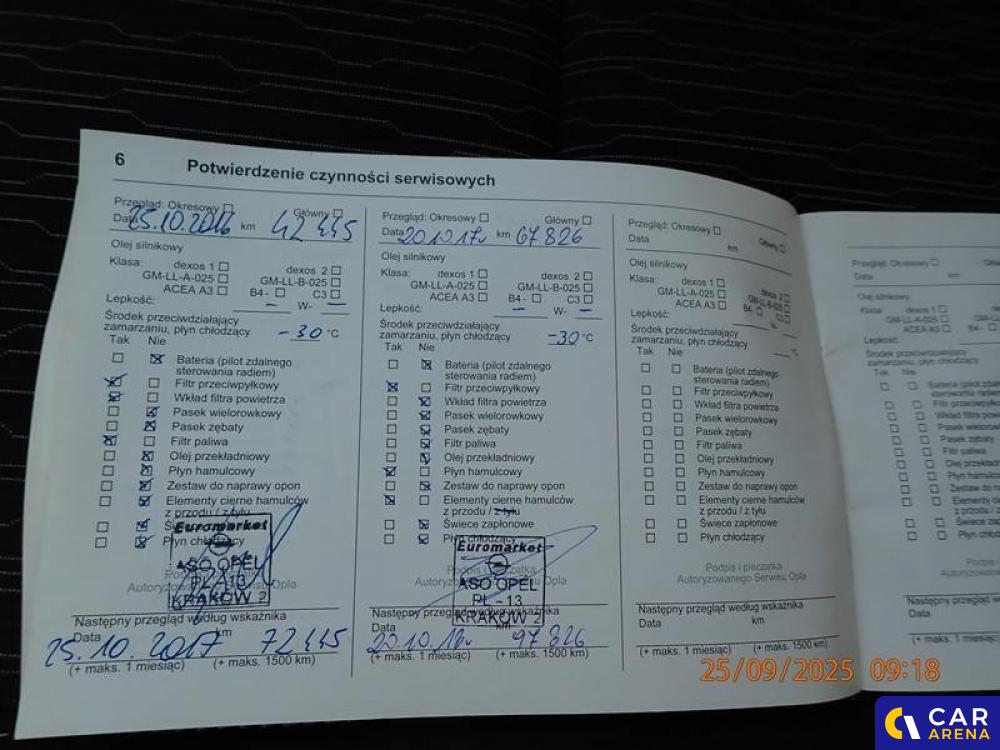 6
Potwierdzenie czynności serwisowych
Przegląd: Okresowy ☐ Główny ☐
Data 25.10.2016 km 42 445
Olej silnikowy
Klasa: dexos 1 ☐ dexos 2 ☐
GM-LL-A-025 ☐ GM-LL-B-025 ☐
ACEA A3 ☐ B4 - ☐ C3 ☐
Lepkość: – W- –
Środek przeciwdziałający
zamarzaniu, płyn chłodzący -30 °C
Tak Nie
☐ ☒ Bateria (pilot zdalnego
sterowania radiem)
☒ ☐ Filtr przeciwpyłkowy
☒ ☐ Wkład filtra powietrza
☐ ☒ Pasek wielorowkowy
☐ ☒ Pasek zębaty
☒ ☐ Filtr paliwa
☐ ☒ Olej przekładniowy
☐ ☒ Płyn hamulcowy
☐ ☒ Zestaw do naprawy opon
☐ ☒ Elementy cierne hamulców
z przodu / z tyłu
☐ ☒
☐ ☒ Płyn chłodzący
Euromarket
ASO OPEL
PL - 13
KRAKÓW 2
Autoryzowanego Serwisu Opla
Następny przegląd według wskaźnika
Data km
25.10.2017 72 445
(+ maks. 1 miesiąc) (+ maks. 1500 km)
Przegląd: Okresowy ☐ Główny ☐
Data 20.10.17r km 67 826
Olej silnikowy
Klasa: dexos 1 ☐ dexos 2 ☐
GM-LL-A-025 ☐ GM-LL-B-025 ☐
ACEA A3 ☐ B4 - ☐ C3 ☐
Lepkość: – W- –
Środek przeciwdziałający
zamarzaniu, płyn chłodzący -30 °C
Tak Nie
☐ ☒ Bateria (pilot zdalnego
sterowania radiem)
☒ ☐ Filtr przeciwpyłkowy
☐ ☒ Wkład filtra powietrza
☐ ☒ Pasek wielorowkowy
☐ ☒ Pasek zębaty
☐ ☒ Filtr paliwa
☐ ☒ Olej przekładniowy
☒ ☐ Płyn hamulcowy
☐ ☒ Zestaw do naprawy opon
☒ ☐ Elementy cierne hamulców
z przodu / z tyłu
☐ ☒ Świece zapłonowe
☐ ☒ Płyn chłodzący
Euromarket
Podpis i pieczątka
ASO OPEL
PL - 13
KRAKÓW 2
Następny przegląd według wskaźnika
Data km
97 826
(+ maks. 1 miesiąc) (+ maks. 1500 km)
Przegląd: Okresowy ☐ Główny ☐
Data km
Olej silnikowy
Klasa: dexos 1 ☐ dexos 2 ☐
GM-LL-A-025 ☐ GM-LL-B-025 ☐
ACEA A3 ☐ B4 ☐ C3 ☐
Lepkość: W-
Środek przeciwdziałający
zamarzaniu, płyn chłodzący °C
Tak Nie
☐ ☐ Bateria (pilot zdalnego
sterowania radiem)
☐ ☐ Filtr przeciwpyłkowy
☐ ☐ Wkład filtra powietrza
☐ ☐ Pasek wielorowkowy
☐ ☐ Pasek zębaty
☐ ☐ Filtr paliwa
☐ ☐ Olej przekładniowy
☐ ☐ Płyn hamulcowy
☐ ☐ Zestaw do naprawy opon
☐ ☐ Elementy cierne hamulców
z przodu / z tyłu
☐ ☐ Świece zapłonowe
☐ ☐ Płyn chłodzący
Podpis i pieczątka
Autoryzowanego Serwisu Opla
Następny przegląd według wskaźnika
Data km
(+ maks. 1 miesiąc) (+ maks. 1500 km)
Przegląd: Okresowy ☐
Data km
Olej silnikowy
Klasa: dexos 1 ☐
GM-LL-A-025 ☐
ACEA A3 ☐
Lepkość:
Środek przeciwdziałający
zamarzaniu, płyn chłodzący
Tak Nie
☐ ☐ Bateria (pilot
sterowania
☐ ☐ Filtr przeciwpyłkowy
☐ ☐ Wkład filtra
☐ ☐ Pasek
☐ ☐ Pasek zębaty
☐ ☐ Filtr paliwa
☐ ☐ Olej
☐ ☐ Płyn hamulcowy
☐ ☐ Zestaw do
☐ ☐ Elementy
z przodu
☐ ☐ Świece
☐ ☐ Płyn
Podpis
Następny przegląd według
Data
(+ maks. 1 miesiąc)
25/09/2025 09:18
CAR
ARENA